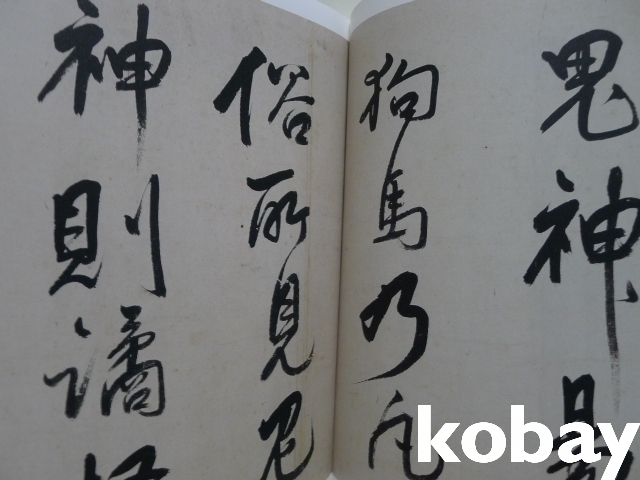 鬼神
狗馬乃凡
俗所見鬼
神則譎
kobay